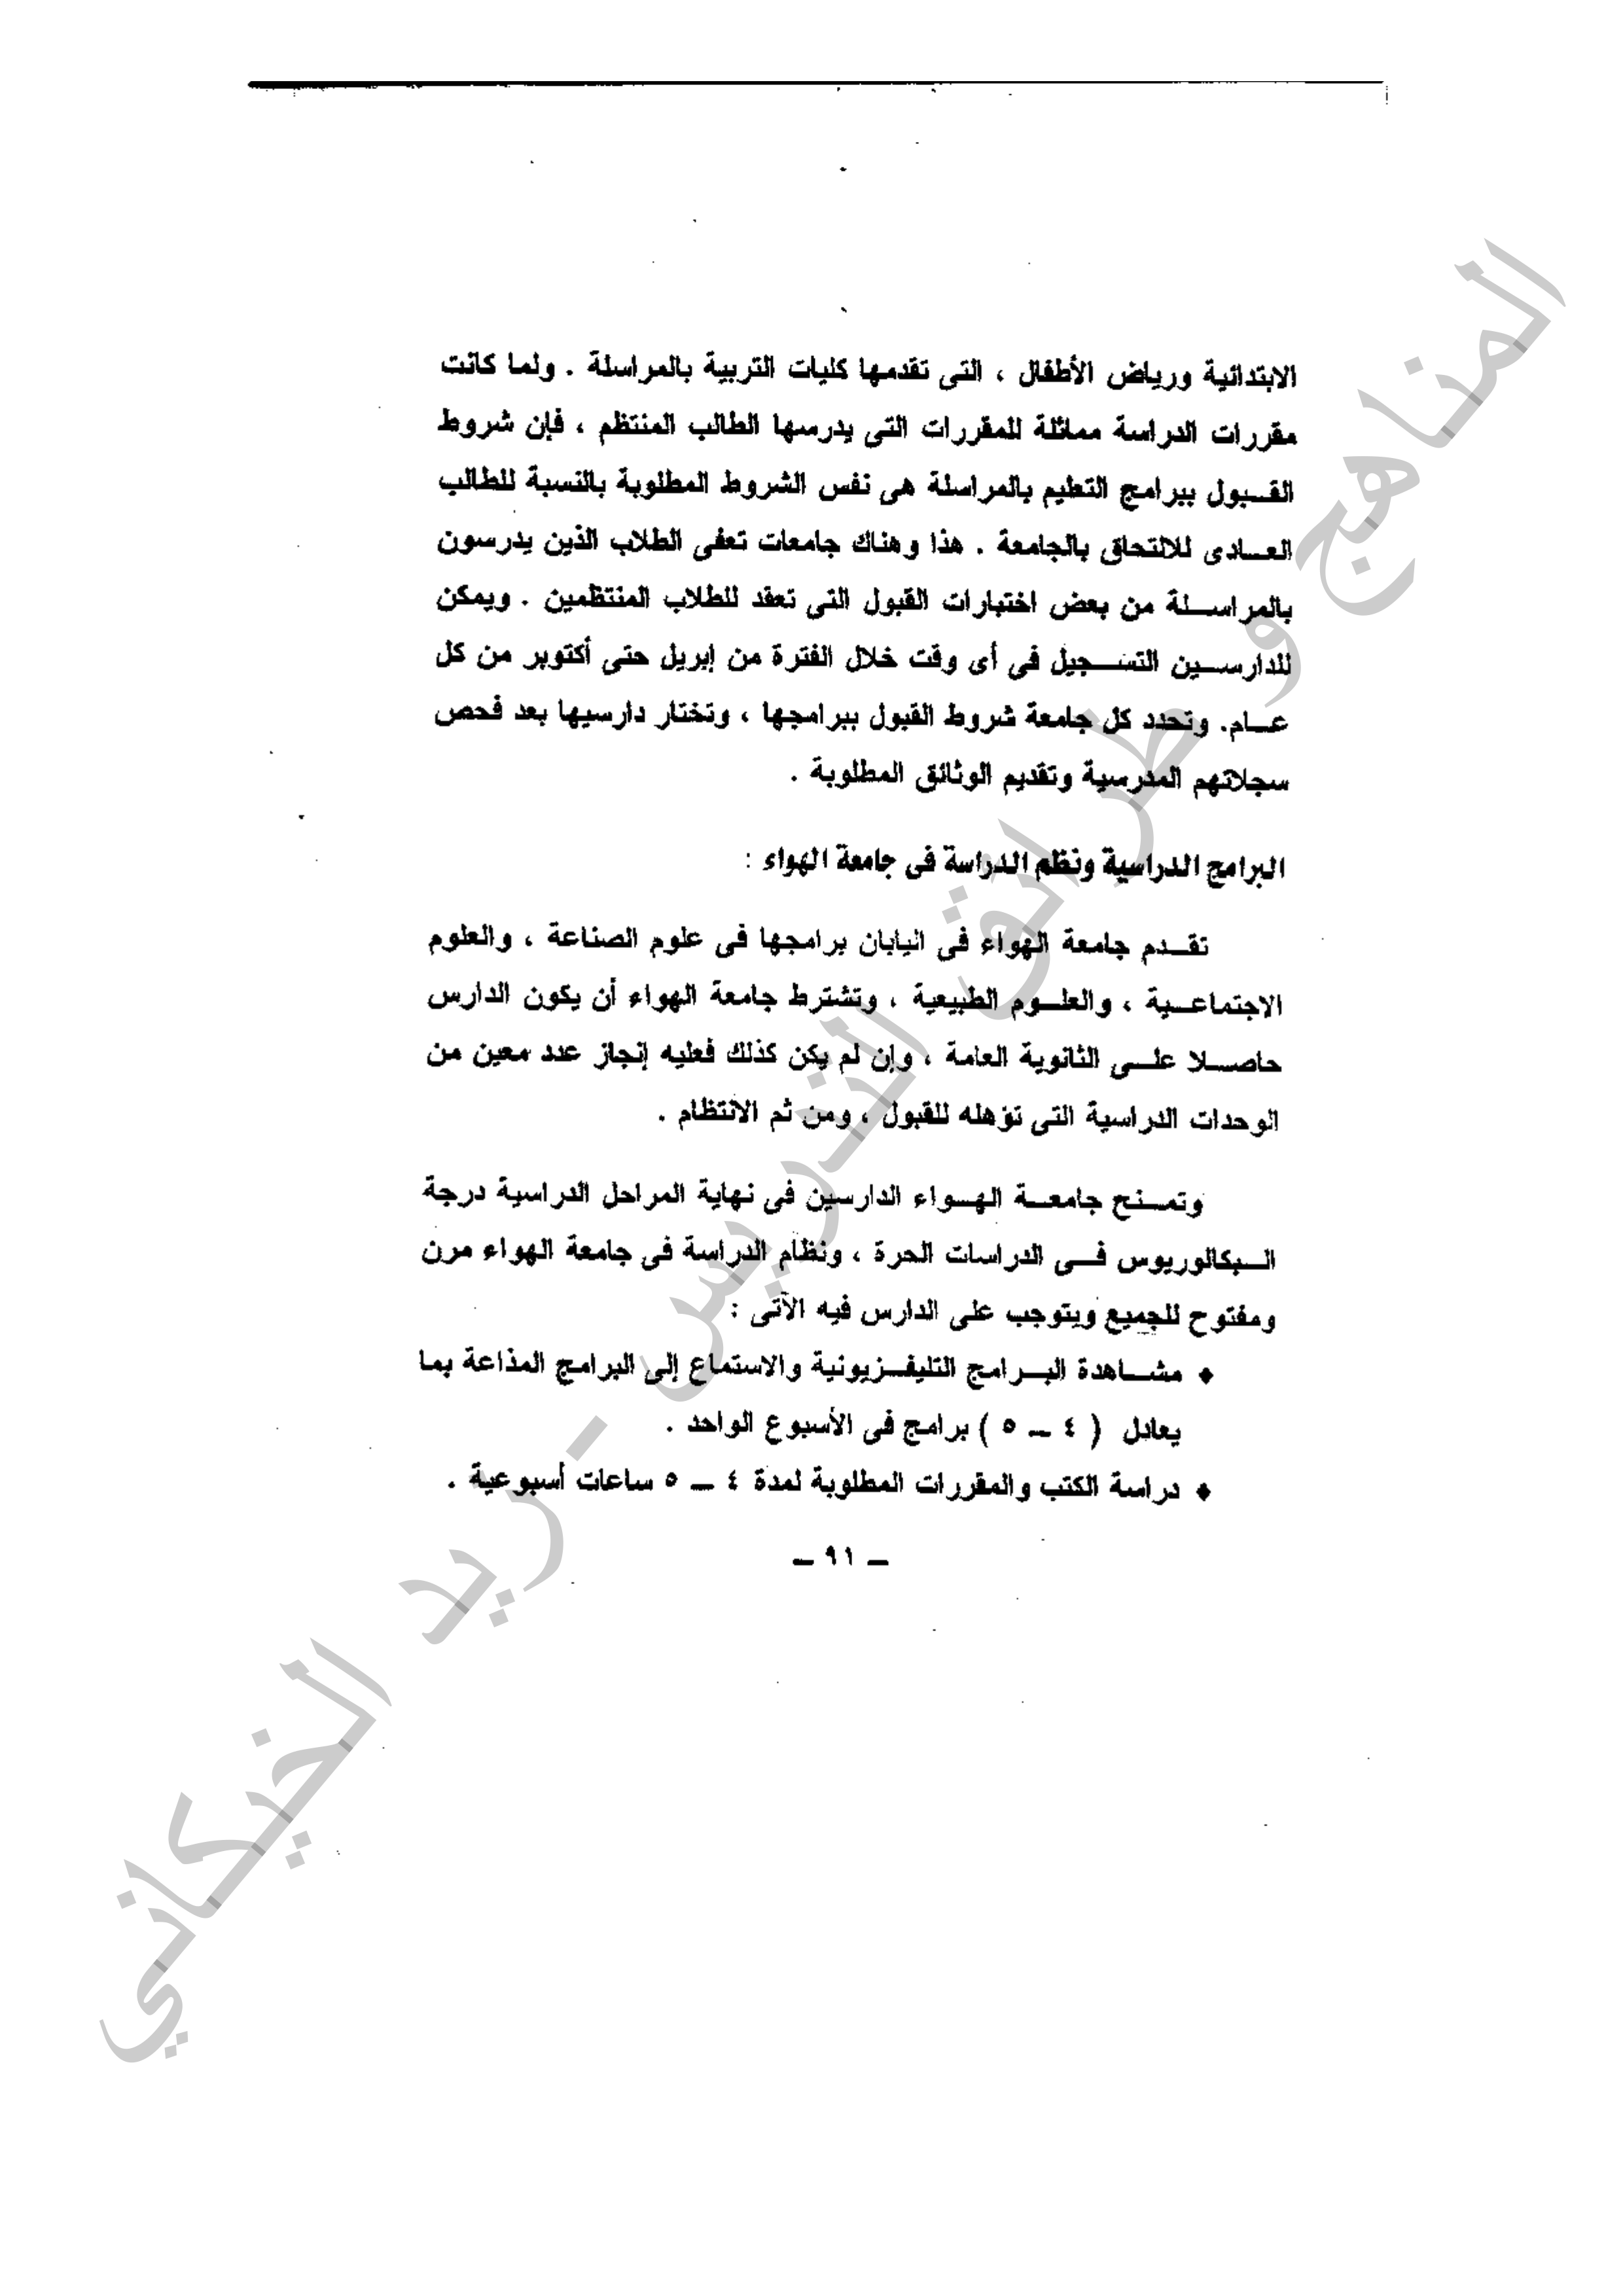 الابتدائية ورياض الأطفال ، التى تقدمها كليات التربية بالمراسلة . ولما كانت
مقررات الدراسة مماثلة للمقررات التى يدرسها الطالب المنتظم ، فإن شروط
القـبول ببرامج التعليم بالمراسلة هى نفس الشروط المطلوبة بالنسبة للطالب
العـادى للالتحاق بالجامعة . هذا وهناك جامعات تعفى الطلاب الذين يدرسون
بالمراسـلة من بعض اختبارات القبول التى تعقد للطلاب المنتظمين . ويمكن
للدارسـين التسـجيل فى أى وقت خلال الفترة من إبريل حتى أكتوبر من كل
عـام. وتحدد كل جامعة شروط القبول ببرامجها ، وتختار دارسيها بعد فحص
سجلاتهم المدرسية وتقديم الوثائق المطلوبة .
البرامج الدراسية ونظم الدراسة فى جامعة الهواء :
تقـدم جامعة الهواء فى اليابان برامجها فى علوم الصناعة ، والعلوم
الاجتماعـية ، والعلـوم الطبيعية ، وتشترط جامعة الهواء أن يكون الدارس
حاصـلا علـى الثانوية العامة ، وإن لم يكن كذلك فعليه إنجاز عدد معين من
الوحدات الدراسية التى تؤهله للقبول ، ومن ثم الانتظام .
وتمـنح جامعـة الهـواء الدارسين فى نهاية المراحل الدراسية درجة
الـبكالوريوس فـى الدراسات الحرة ، ونظام الدراسة فى جامعة الهواء مرن
ومفتوح للجميع ويتوجب على الدارس فيه الآتى :
♦ مشـاهدة البـرامج التليفـزيونية والاستماع إلى البرامج المذاعة بما
يعادل ( ٤ ــ ٥ ) برامج فى الأسبوع الواحد .
♦ دراسة الكتب والمقررات المطلوبة لمدة ٤ ــ ٥ ساعات أسبوعية .
ــ ٩١ ــ
المناهج و طرائق التدريس - ريد الخيكاني